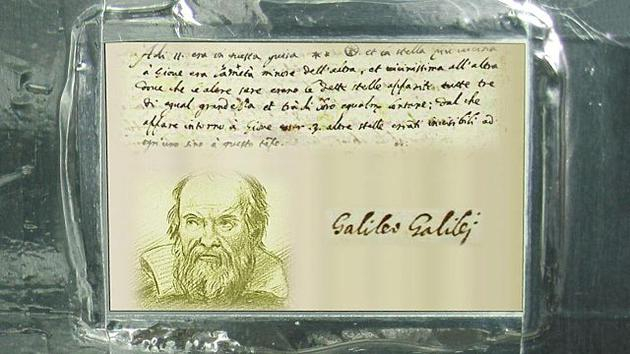 Adi 11. era in questa guisa ** et la stella più vicina
à Giove era la metà minore dell'altra, et vicinissima all'altra
dove che le altre sere erano le dette stelle apparite tutte tre
di equal grandezza et trà di loro equalm. lontane; dal che
appare intorno à Giove esser .3. altre stelle erranti invisibili ad
ogni uno sino à questo tempo.
Galileo Galilej